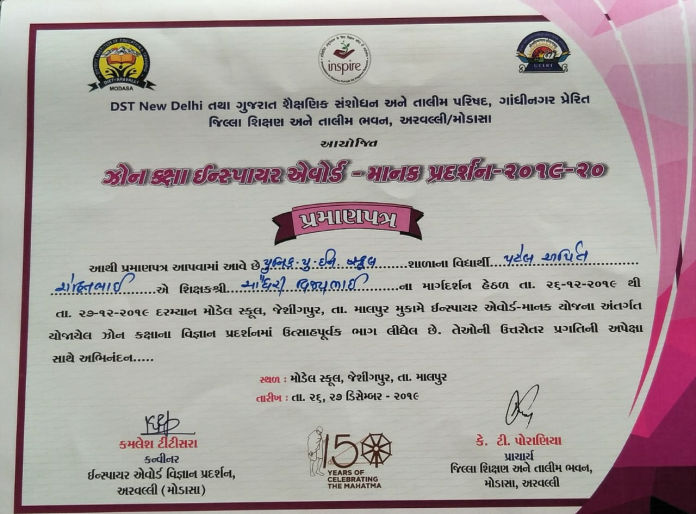 MODASA
inspire
GCERT
DST New Delhi તથા ગુજરાત શૈક્ષણિક સંશોધન અને તાલીમ પરિષદ, ગાંધીનગર પ્રેરિત
જિલ્લા શિક્ષણ અને તાલીમ ભવન, અરવલ્લી/મોડાસા
આયોજિત
ઝોન કક્ષા ઈન્સ્પાયર એવોર્ડ - માનક પ્રદર્શન-૨૦૧૯-૨૦
પ્રમાણપત્ર
આથી પ્રમાણપત્ર આપવામાં આવે છે યુનિક. યુ. ઈન. સ્કૂલ શાળાના વિદ્યાર્થી પટેલ અર્પિત
એ શિક્ષકશ્રી ચૌધરી વિજયભાઈ ના માર્ગદર્શન હેઠળ તા. ૨૬-૧૨-૨૦૧૯ થી
તા. ૨૭-૧૨-૨૦૧૯ દરમ્યાન મોડેલ સ્કૂલ, જેશીંગપુર, તા. માલપુર મુકામે ઈન્સ્પાયર એવોર્ડ-માનક યોજના અંતર્ગત
યોજાયેલ ઝોન કક્ષાના વિજ્ઞાન પ્રદર્શનમાં ઉત્સાહપૂર્વક ભાગ લીધેલ છે. તેઓની ઉત્તરોતર પ્રગતિની અપેક્ષા
સાથે અભિનંદન.....
સ્થળ : મોડેલ સ્કૂલ, જેશીંગપુર, તા. માલપુર
તારીખ : તા. ૨૬, ૨૭ ડિસેમ્બર - ૨૦૧૯
કમલેશ ટીટીસરા
કન્વીનર
ઈન્સ્પાયર એવોર્ડ વિજ્ઞાન પ્રદર્શન,
અરવલ્લી (મોડાસા)
150
YEARS OF
CELEBRATING
THE MAHATMA
કે. ટી. પોરાણિયા
પ્રાચાર્ય
જિલ્લા શિક્ષણ અને તાલીમ ભવન,
મોડાસા, અરવલ્લી